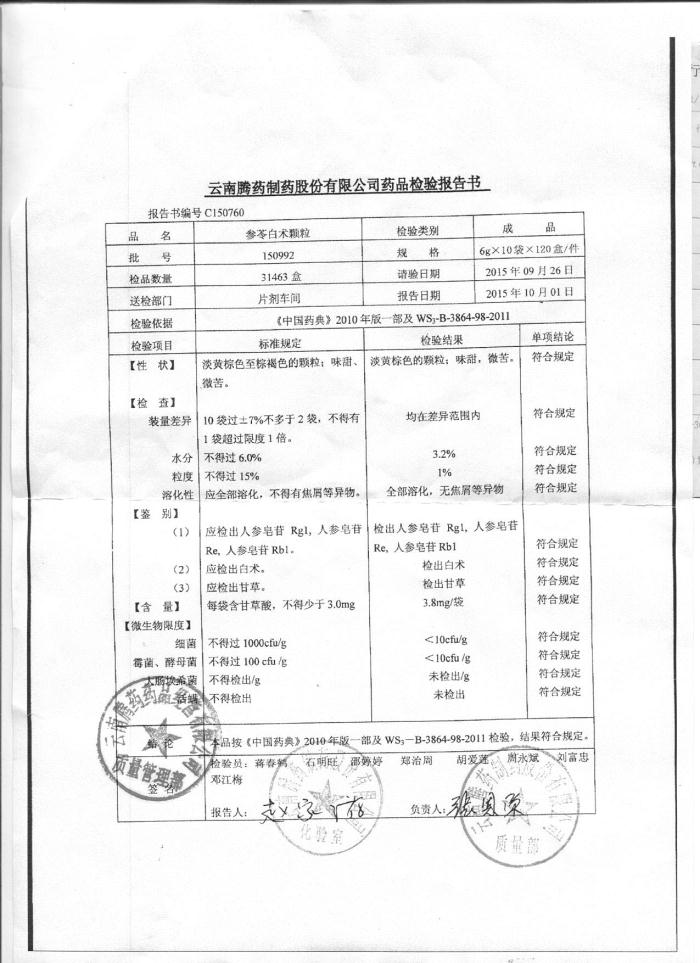 云南腾药制药股份有限公司药品检验报告书
报告书编号 C150760
品 名 参苓白术颗粒 检验类别 成 品
批 号 150992 规 格 6g×10袋×120盒/件
检品数量 31463 盒 请验日期 2015 年 09 月 26 日
送检部门 片剂车间 报告日期 2015 年 10 月 01 日
检验依据 《中国药典》2010 年版一部及 WS3-B-3864-98-2011
检验项目 标准规定 检验结果 单项结论
【性 状】 淡黄棕色至棕褐色的颗粒；味甜、 淡黄棕色的颗粒；味甜，微苦。 符合规定
微苦。
【检 查】
装量差异 10 袋过±7%不多于 2 袋，不得有 均在差异范围内 符合规定
1 袋超过限度 1 倍。
水分 不得过 6.0% 3.2% 符合规定
粒度 不得过 15% 1% 符合规定
溶化性 应全部溶化，不得有焦屑等异物。 全部溶化，无焦屑等异物 符合规定
【鉴 别】
（1） 应检出人参皂苷 Rg1, 人参皂苷 检出人参皂苷 Rg1, 人参皂苷
Re, 人参皂苷 Rb1。 Re, 人参皂苷 Rb1 符合规定
（2） 应检出白术。 检出白术 符合规定
（3） 应检出甘草。 检出甘草 符合规定
【含 量】 每袋含甘草酸，不得少于 3.0mg 3.8mg/袋 符合规定
【微生物限度】
细菌 不得过 1000cfu/g ＜10cfu/g 符合规定
霉菌、酵母菌 不得过 100 cfu /g ＜10cfu /g 符合规定
大肠埃希菌 不得检出/g 未检出/g 符合规定
活螨 不得检出 未检出 符合规定
结 论 本品按《中国药典》2010 年版一部及 WS3－B-3864-98-2011 检验，结果符合规定。
检验员：蒋春鹤 石明旺 邵婷婷 郑治周 胡爱莲 周永斌 刘富忠
邓江梅
签 名
报告人： 负责人：
质量管理部
化验室
质量部